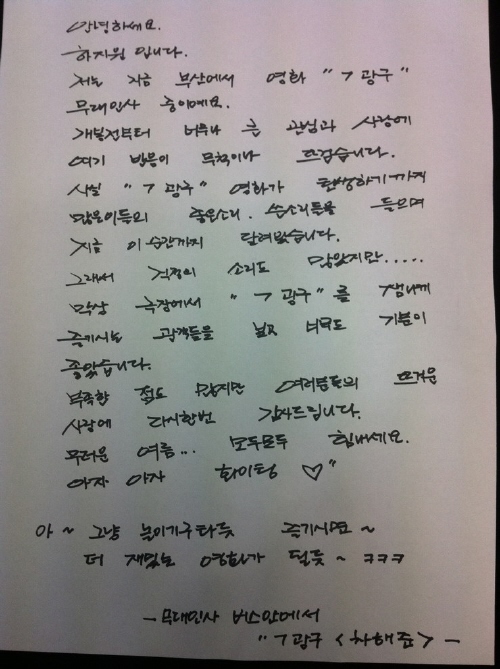 안녕하세요.
하지원 입니다.
저는 지금 부산에서 영화 "7 광구"
무대인사 중이예요.
개봉전부터 너무나 큰 관심과 사랑에
여기 반응이 무척이나 뜨겁습니다.
사실 "7 광구" 영화가 탄생하기까지
많은이들의 좋은소리. 쓴소리들을 들으며
지금 이 순간까지 달려왔습니다.
그래서 걱정의 소리도 많았지만.....
막상 극장에서 "7 광구"를 잼나게
즐기시는 관객들을 보고 너무도 기분이
좋았습니다.
부족한 점도 많지만 여러분들의 뜨거운
사랑에 다시한번 감사드립니다.
무더운 여름... 모두모두 힘내세요.
아자 아자 화이팅 ♡"
아~ 그냥 놀이기구타듯 즐기시면~
더 재밌는 영화가 될듯~ ㅋㅋㅋ
- 무대인사 버스안에서
"7 광구 <차해준> -